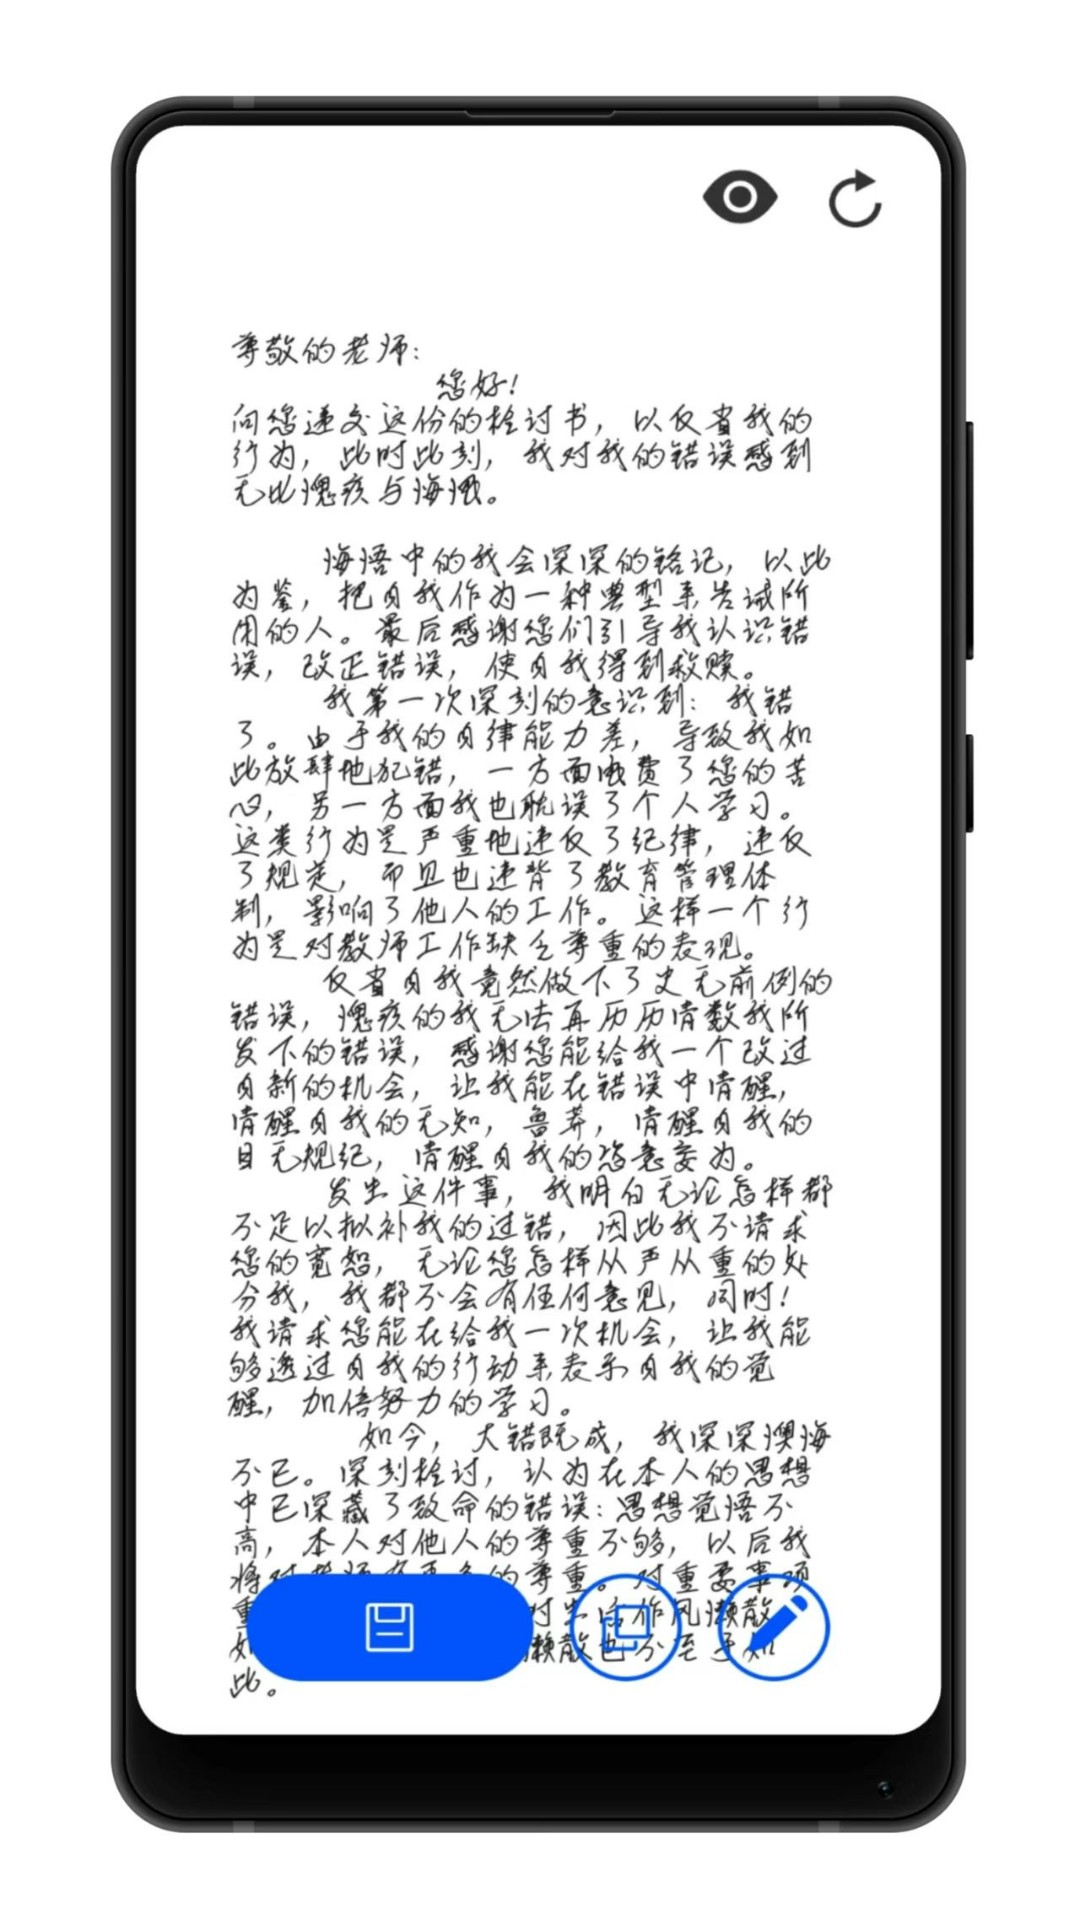 尊敬的老师：
您好！
向您递交这份的检讨书，以反省我的
行为，此时此刻，我对我的错误感到
无比愧疚与悔恨。
悔悟中的我会深深的铭记，以此
为鉴，把自我作为一种典型来告诫所
用的人。最后感谢您们引导我认识错
误，改正错误，使自我得到救赎。
我第一次深刻的意识到：我错
了。由于我的自律能力差，导致我如
此放肆地犯错，一方面浪费了您的苦
心，另一方面我也耽误了个人学习。
这类行为是严重地违反了纪律，违反
了规定，而且也违背了教育管理体
制，影响了他人的工作。这样一个行
为是对教师工作缺乏尊重的表现。
反省自我竟然做下了史无前例的
错误，愧疚的我无法再历历清数我所
发下的错误，感谢您能给我一个改过
自新的机会，让我能在错误中情醒，
情醒自我的无知，鲁莽，情醒自我的
目无规纪，情醒自我的恣意妄为。
发生这件事，我明白无论怎样都
不足以拟补我的过错，因此我不请求
您的宽恕，无论您怎样从严从重的处
分我，我都不会有任何意见，同时！
我请求您能在给我一次机会，让我能
够透过自我的行动来表示自我的觉
醒，加倍努力的学习。
如今，大错既成，我深深懊悔
不已。深刻检讨，认为在本人的思想
中已深藏了致命的错误：思想觉悟不
高，本人对他人的尊重不够，以后我
将对老师有更多的尊重。对重要事项
重 对生活作风懒散
如 懒散也不至于如
此。